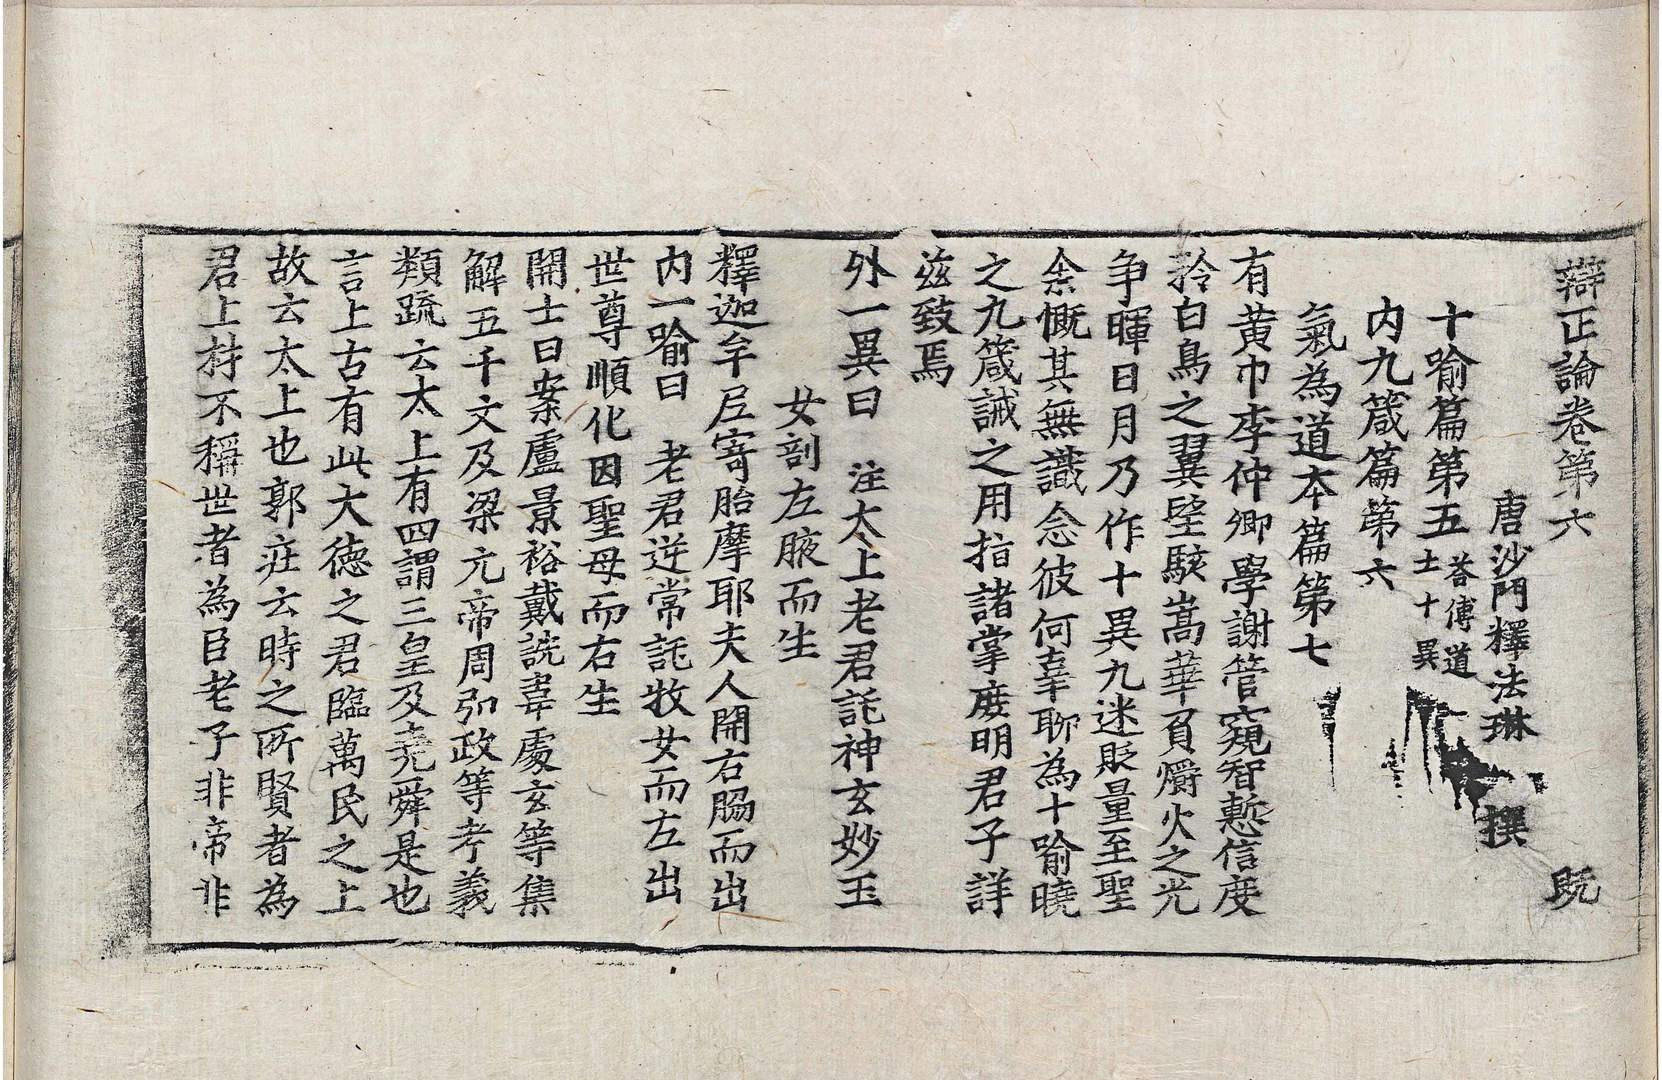 辯正論卷第六 既
唐沙門釋法琳 撰
十喻篇第五 荅傅道士十異
内九箴篇第六
氣為道本篇第七
有黃巾李仲卿學謝管窺智慙信度
矜白鳥之翼堅駭嵩華負爝火之光
争暉日月乃作十異九迷貶量至聖
余慨其無識念彼何辜聊為十喻曉
之九箴誡之用指諸掌庶明君子詳
兹致焉
外一異曰 注太上老君託神玄妙玉
女剖左腋而生
釋迦牟尼寄胎摩耶夫人開右脇而出
内一喻曰 老君逆常託牧女而左出
世尊順化因聖母而右生
開士曰案盧景裕戴詵韋處玄等集
解五千文及梁元帝周弘政等考義
類䟽云太上有四謂三皇及尭舜是也
言上古有此大德之君臨萬民之上
故云太上也郭莊云時之所賢者為
君上材不稱世者為臣老子非帝非